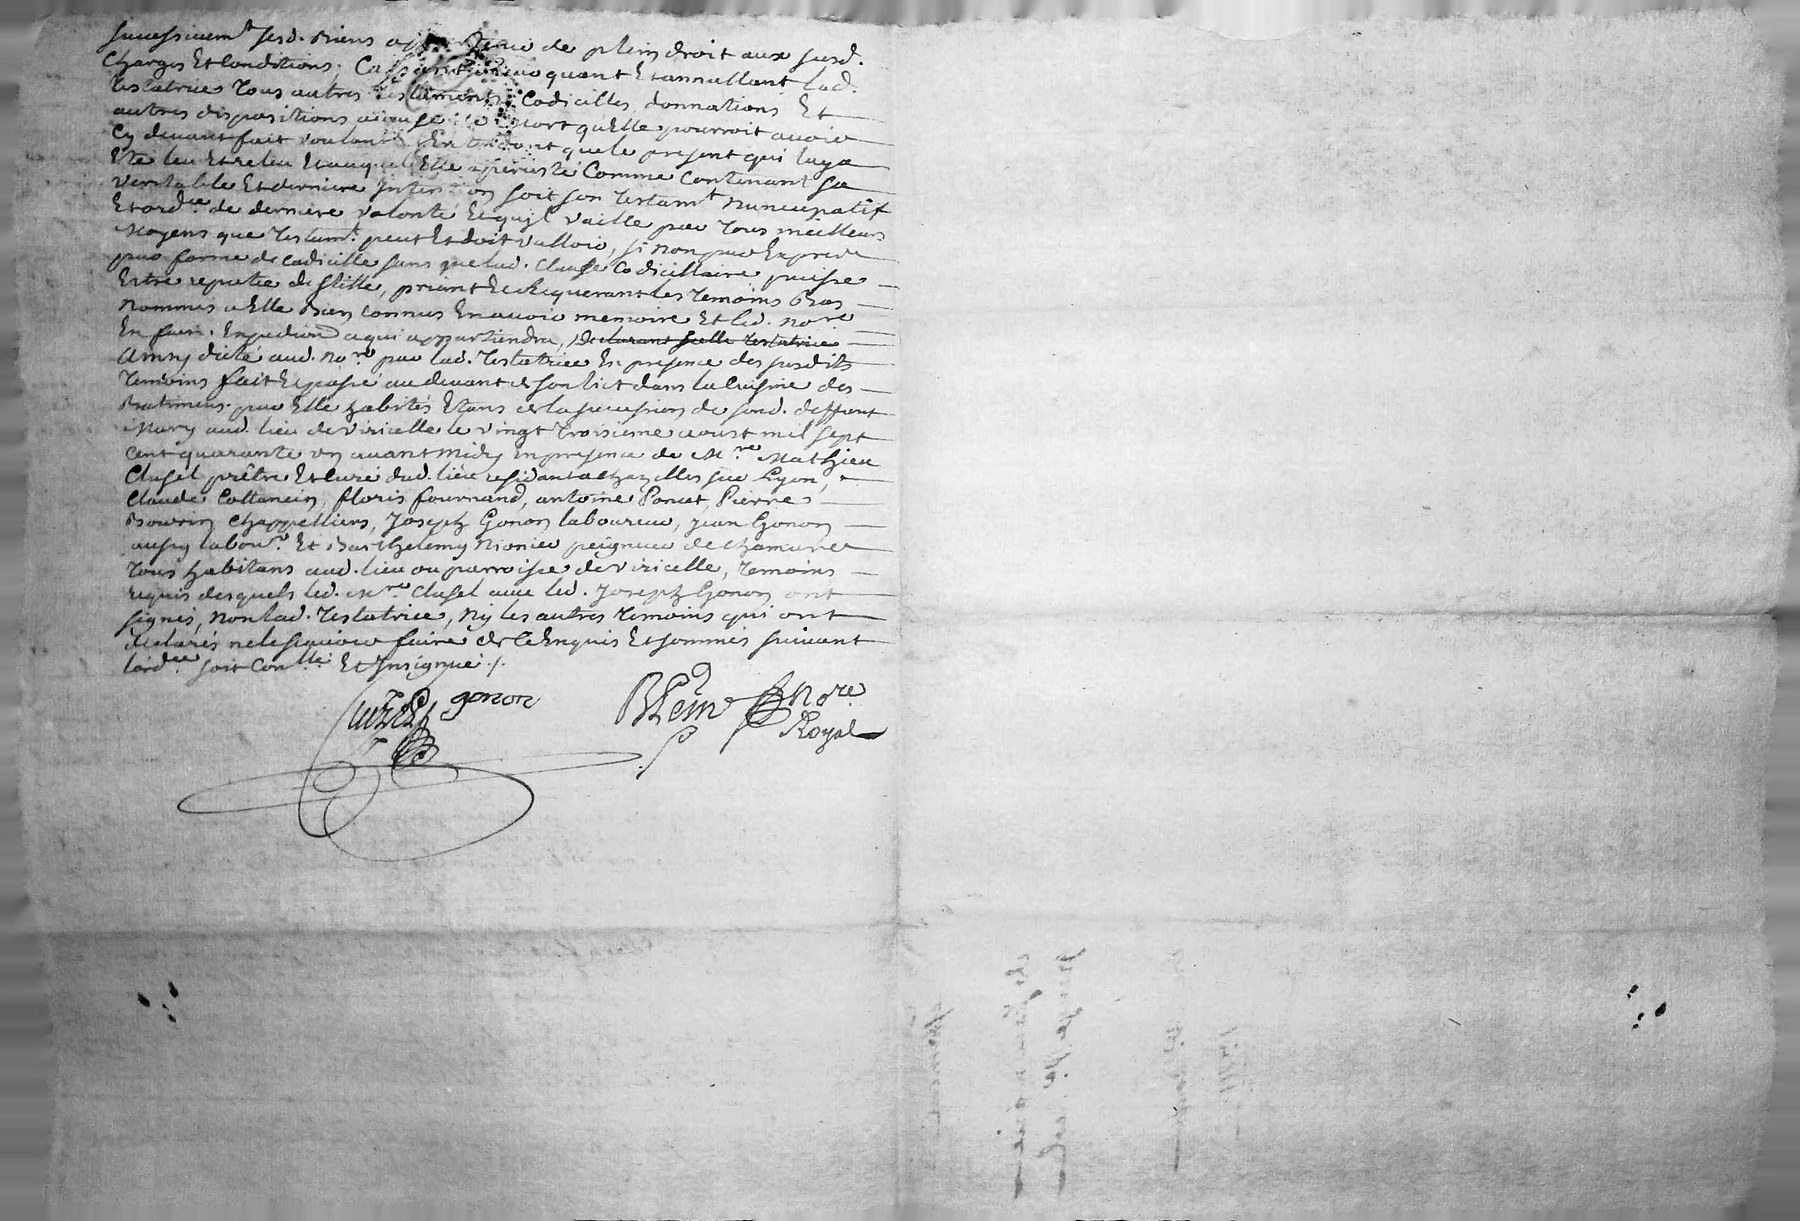 successivem.t sesd. Biens de plein droit aux susd.
Charges Et Conditions. Cassant quant Et annullant lad.
testatrice tous autres testaments, Codicilles, donnations Et
autres dispositions a cause de mort qu'Elle pourroit avoir
Cy devant fait voulant Et Entendant que le present qui luy a
Eté leu Et releu Et auquel Elle a persisté Comme Contenant sa
veritable Et derniere Intention soit son testam.t nuncupatif
Et ord.ce de derniere volonté Et qu'jl vaille par tous meilleurs
moyens que testam.t peut Et doit valloir, si non par Expres
par forme de Codicille sans que lad. Clause Codicillaire puisse
Estre reputée de stille, priant Et Requerant les temoins Bas
nommés a Elle Bien Connus En avoir memoire Et led. no.re
En faire Expedion a qui appartiendra, Declarant lad. testatrice
Ainsy dicté aud. no.re par lad. testatrice En presence des susdits
temoins fait Et passé au devant de son lict dans la Cuisine des
Batimens par Elle habités Etans de la succession de sond. deffunt
Mary aud. lieu de viricelle le vingt troisieme aoust mil sept
cent quarante un avant midy En presence de M.re Mathieu
Clusel prêtre Et Curé dud. lieu residant a Chazelles sur Lyon,
Claude Cottancin, floris fournand, antoine Poncet, Pierre
Bourrin Chappelliers, Joseph Gonon laboureur, Jean Gonon
aussy labour.r Et Barthelemy Nionier peigneur de chamvre
tous habitans aud. lieu ou parroisse de viricelle, temoins
requis desquels led. M.re Clusel avec led. Joseph Gonon ont
signés, non lad. testatrice, ny les autres temoins qui ont
declarés ne le sçavoir faire de Ce Enquis Et sommés suivant
lord.ce soit Con.llé Et Insignué ./.
Cluzel gonon
No.re
Royal